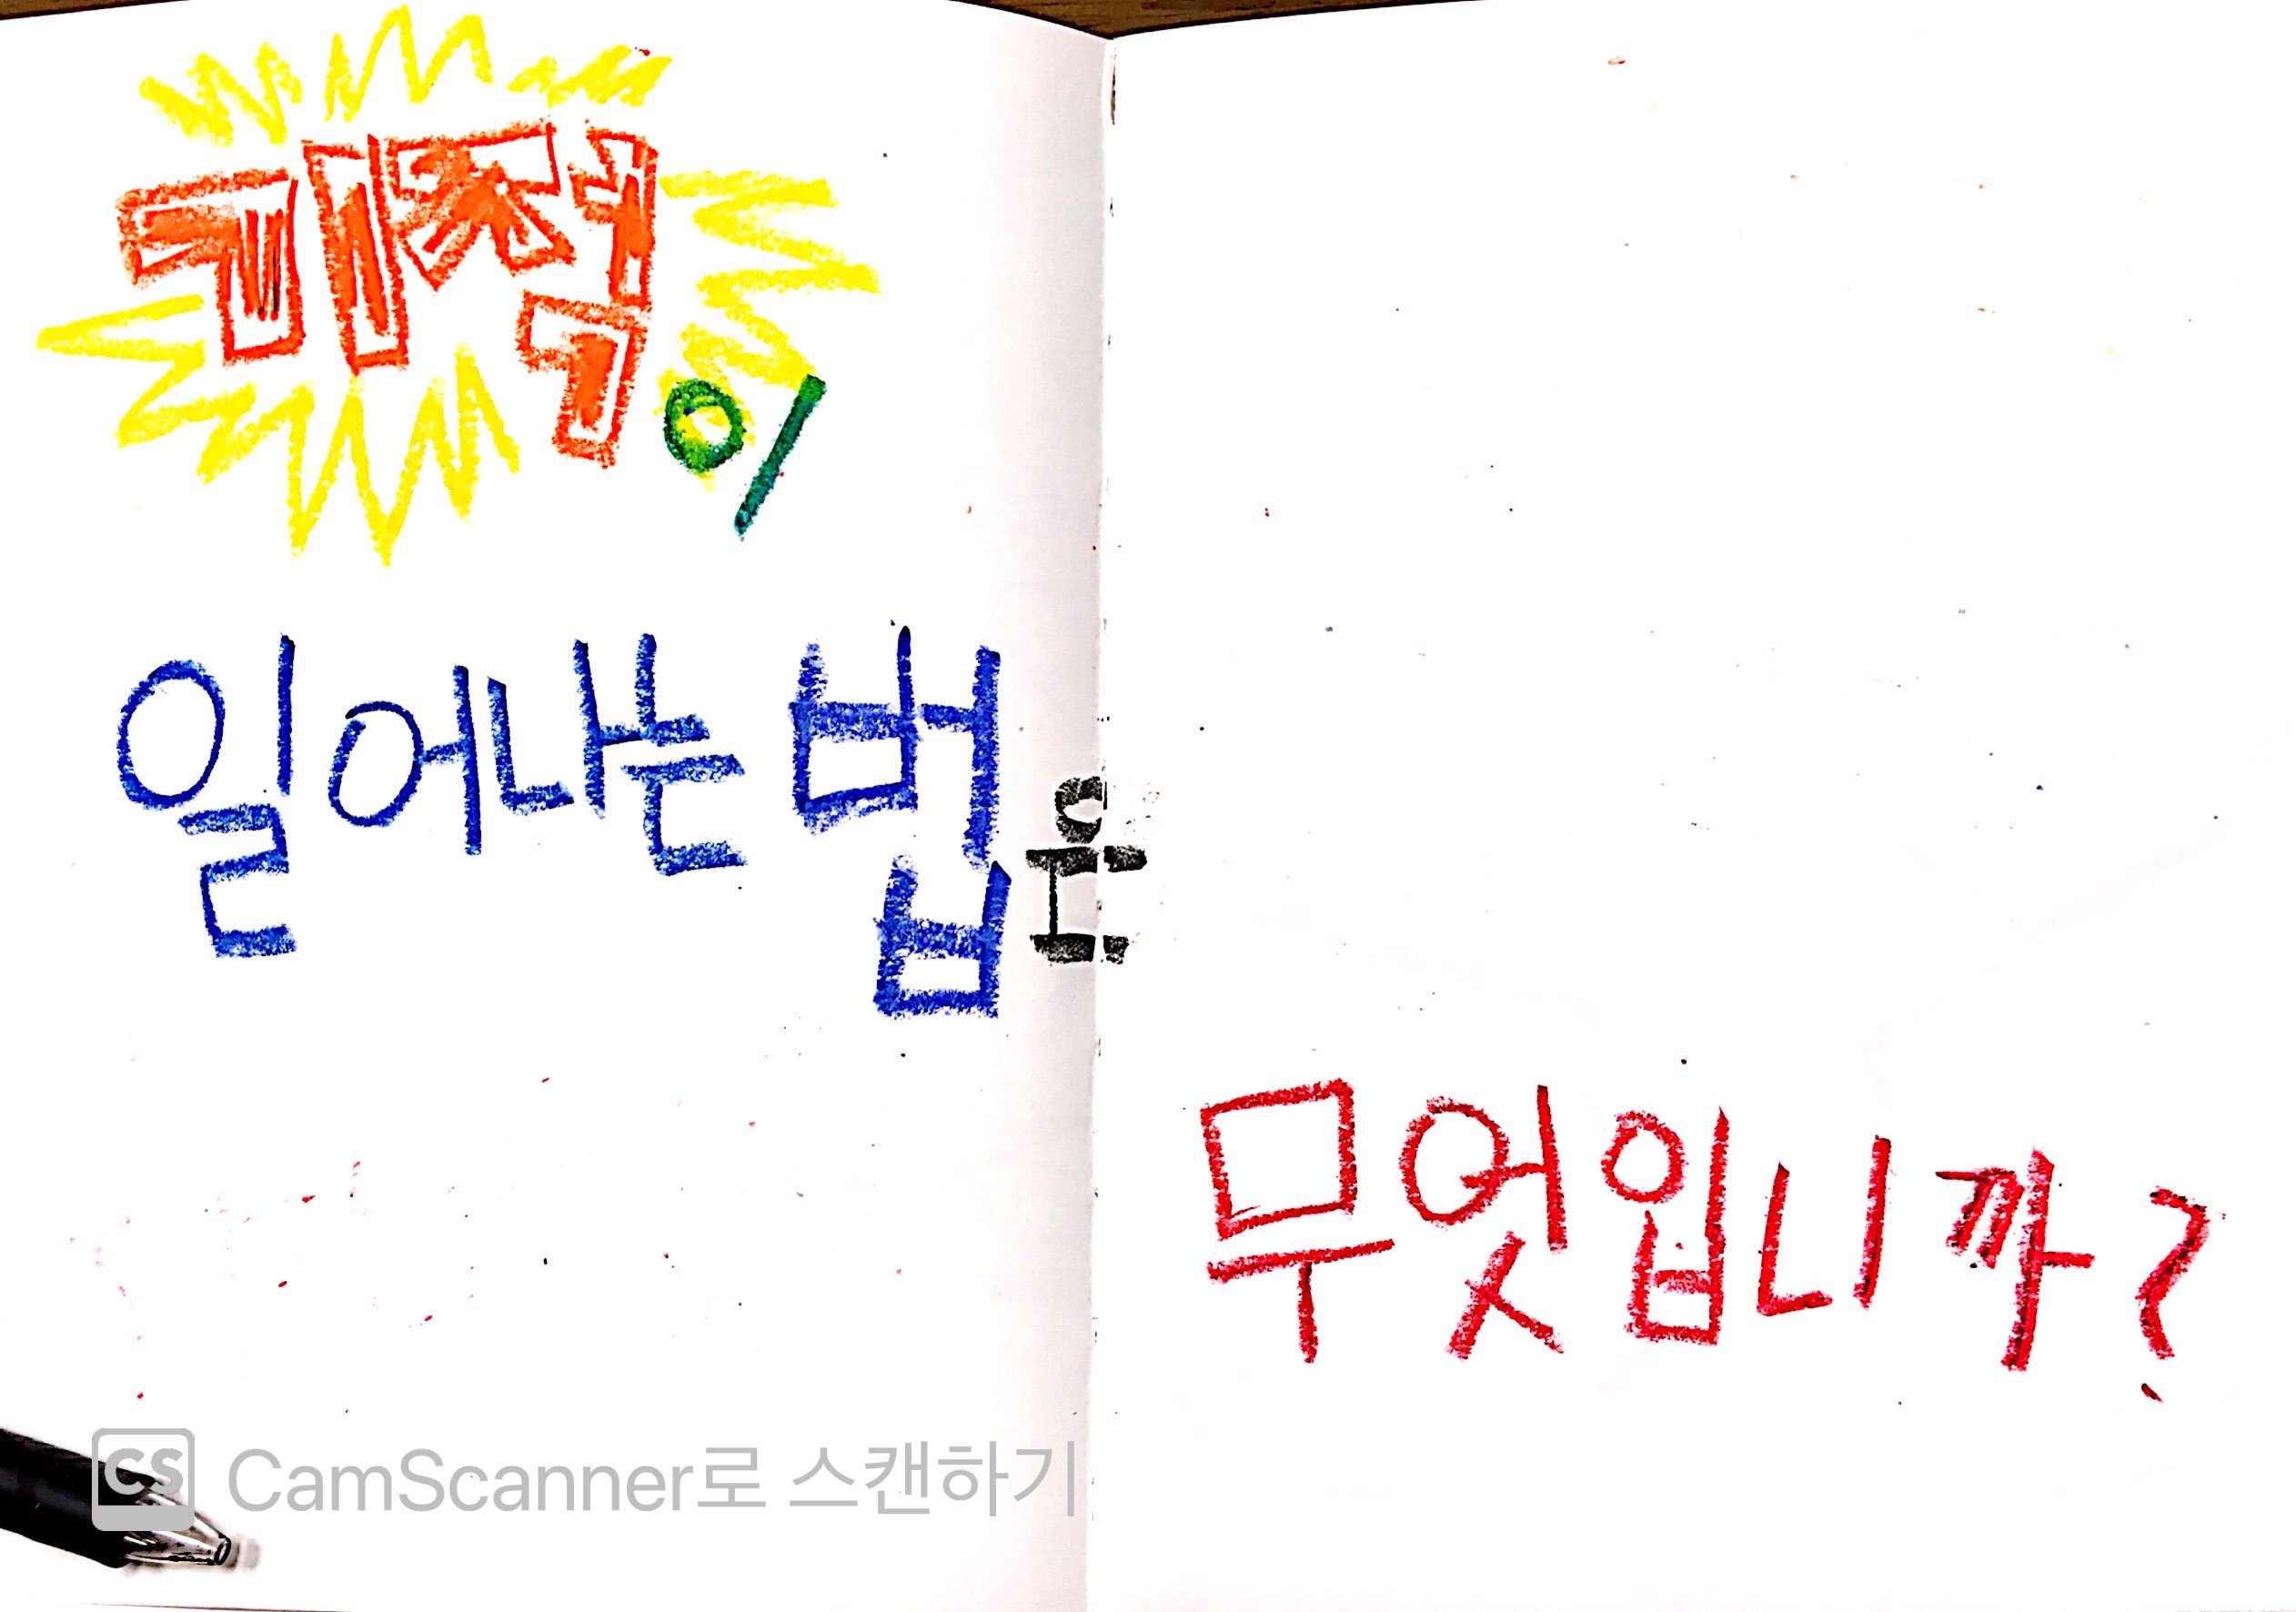 기적이
일어나는 법은
무엇입니까?
CS CamScanner로 스캔하기